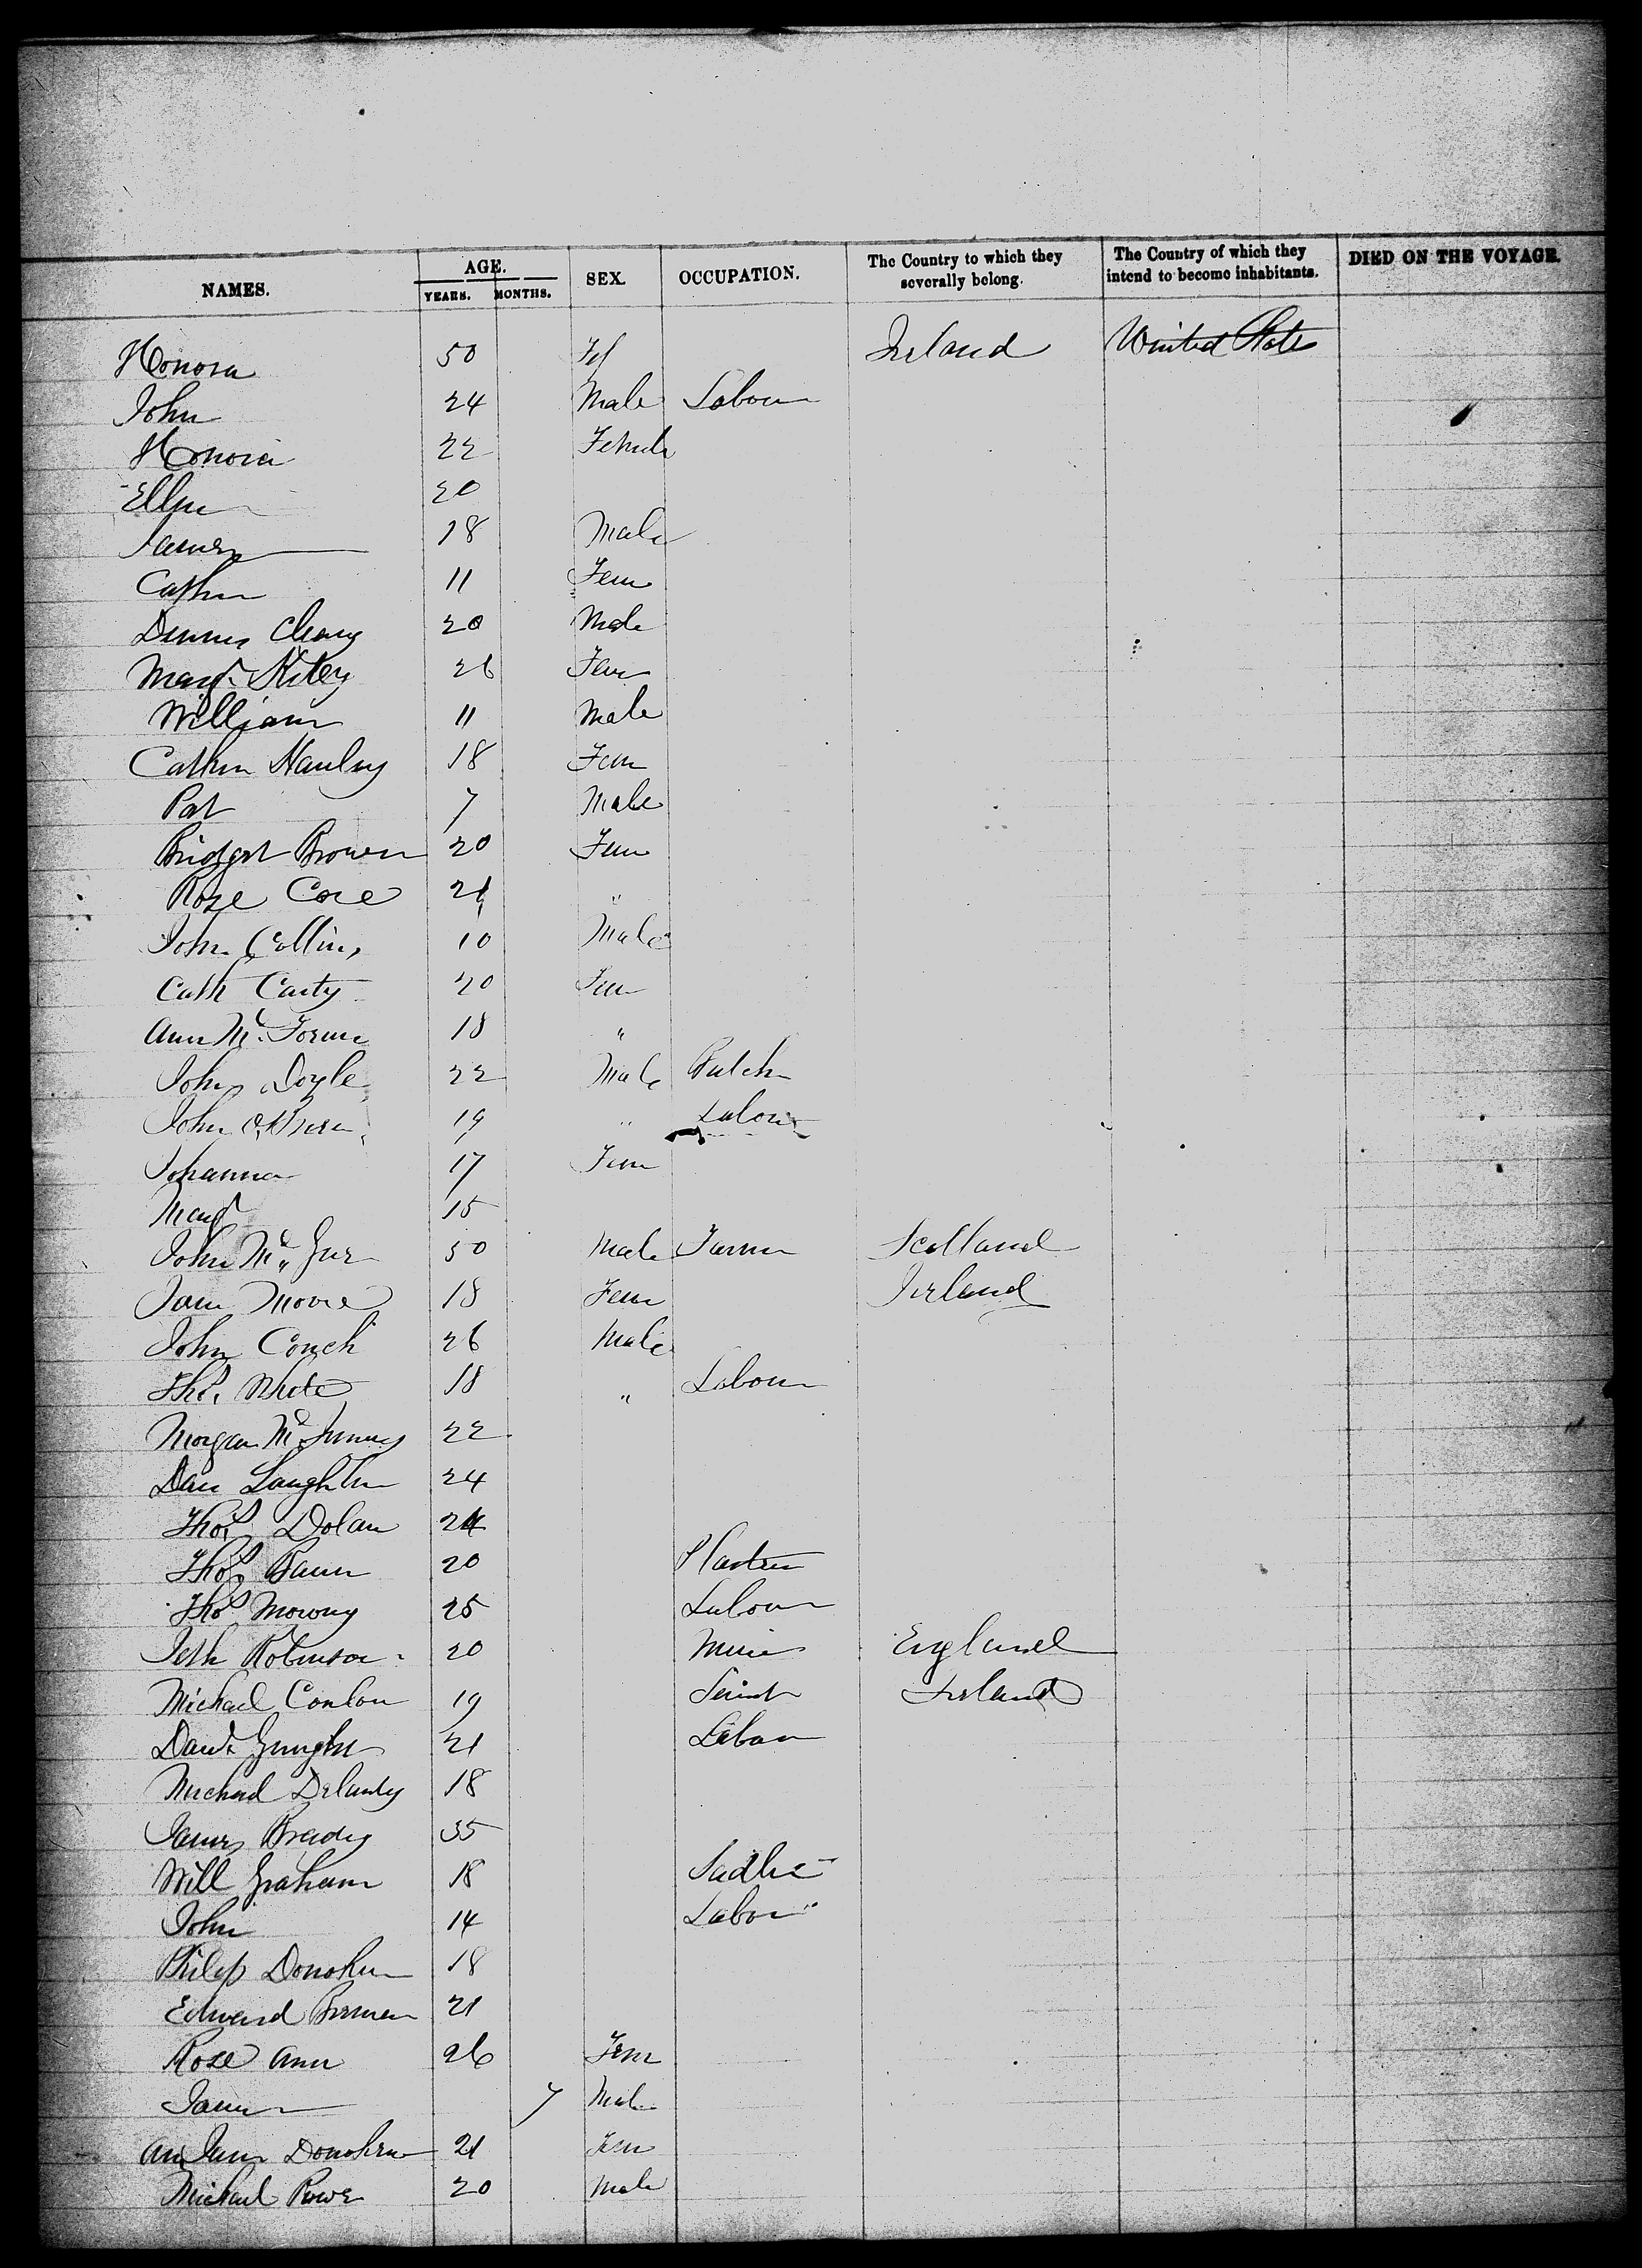 NAMES. AGE. YEARS. MONTHS. SEX. OCCUPATION. The Country to which they severally belong. The Country of which they intend to become inhabitants. DIED ON THE VOYAGE.
Honora 50 Ireland United States
John 24 Male Labour
Honora 22 Female
Ellen 20
James 18 Male
Cathn 11 Fem
Dennis Cleary 20 Male
Margt Kiley 26 Fem
William 11 Male
Cathn Hanley 18 Fem
Pat 7 Male
Bridget Brown 20 Fem
Rose Core 21 "
John Collins 10 Male
Cath Carty 20 Fem
Ann Mc 18 "
John Doyle 22 Male Butch
John O,Brien 19 " Labour
Johanna 17 Fem
Margt 15
John Mc 50 Male Farmer Scotland
Jane Moore 18 Fem Ireland
John Couch 26 Male
Thos. White 18 " Labour
Morgan Mc 22
Dan Laughlin 24
Thos Dolan 24
Thos 20 Plaster
Thos Morony 25 Labour
Seth Robinson 20 Miner England
Michael Conlon 19 Servt Ireland
21 Labour
Michael Delanty 18
James Brady 35
Will Graham 18 Sadler
John 14 Labour
Philip Donohue 18
Edward Brennan 21
Rose Ann 26 Fem
James 7 Male
Ann Jane Donohue 21 Fem
Michael Power 20 Male